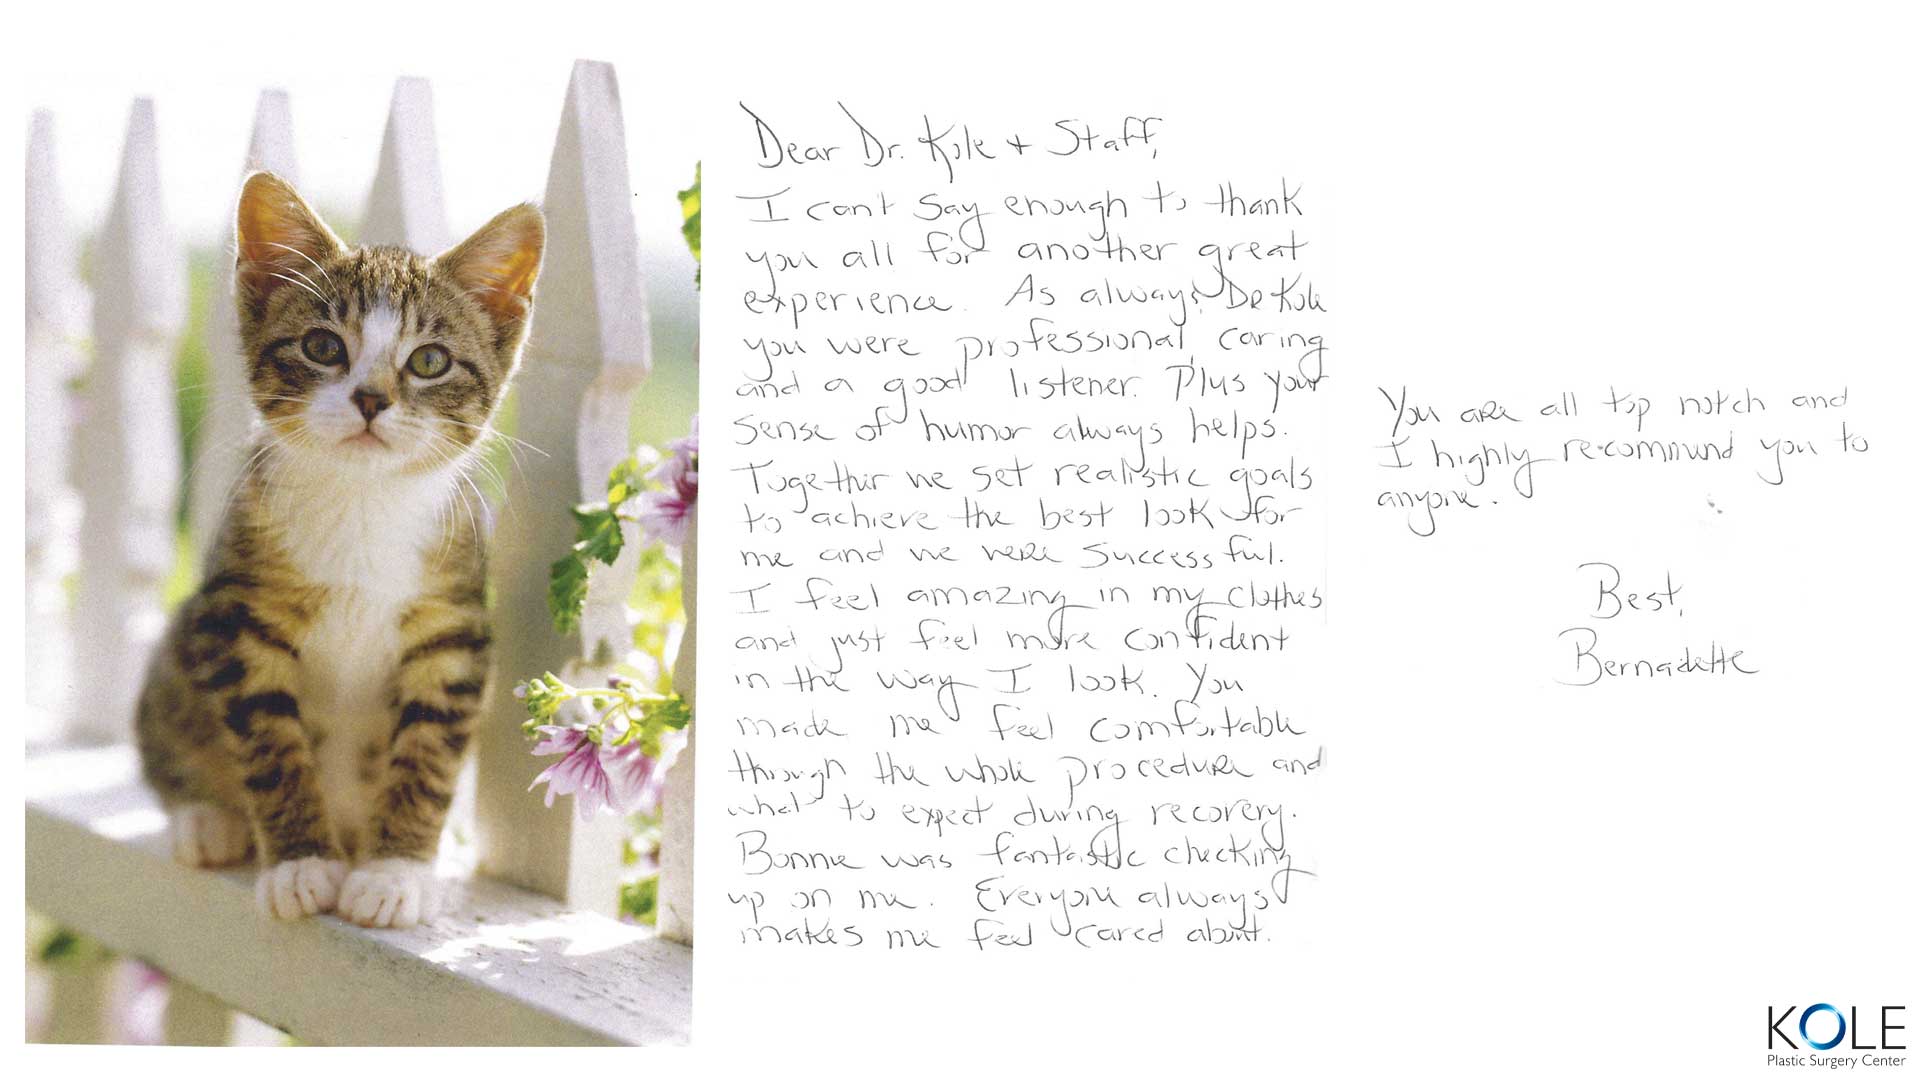 Dear Dr. Kole + Staff,
I can't say enough to thank
you all for another great
experience. As always, Dr Kole
you were professional, caring
and a good listener. Plus your
sense of humor always helps.
Together we set realistic goals
to achieve the best look for
me and we were successful.
I feel amazing in my clothes
and just feel more confident
in the way I look. You
made me feel comfortable
through the whole procedure and
what to expect during recovery.
Bonnie was fantastic checking
up on me. Everyone always
makes me feel cared about.
You are all top notch and
I highly re-commend you to
anyone.
Best,
Bernadette
KOLE
Plastic Surgery Center